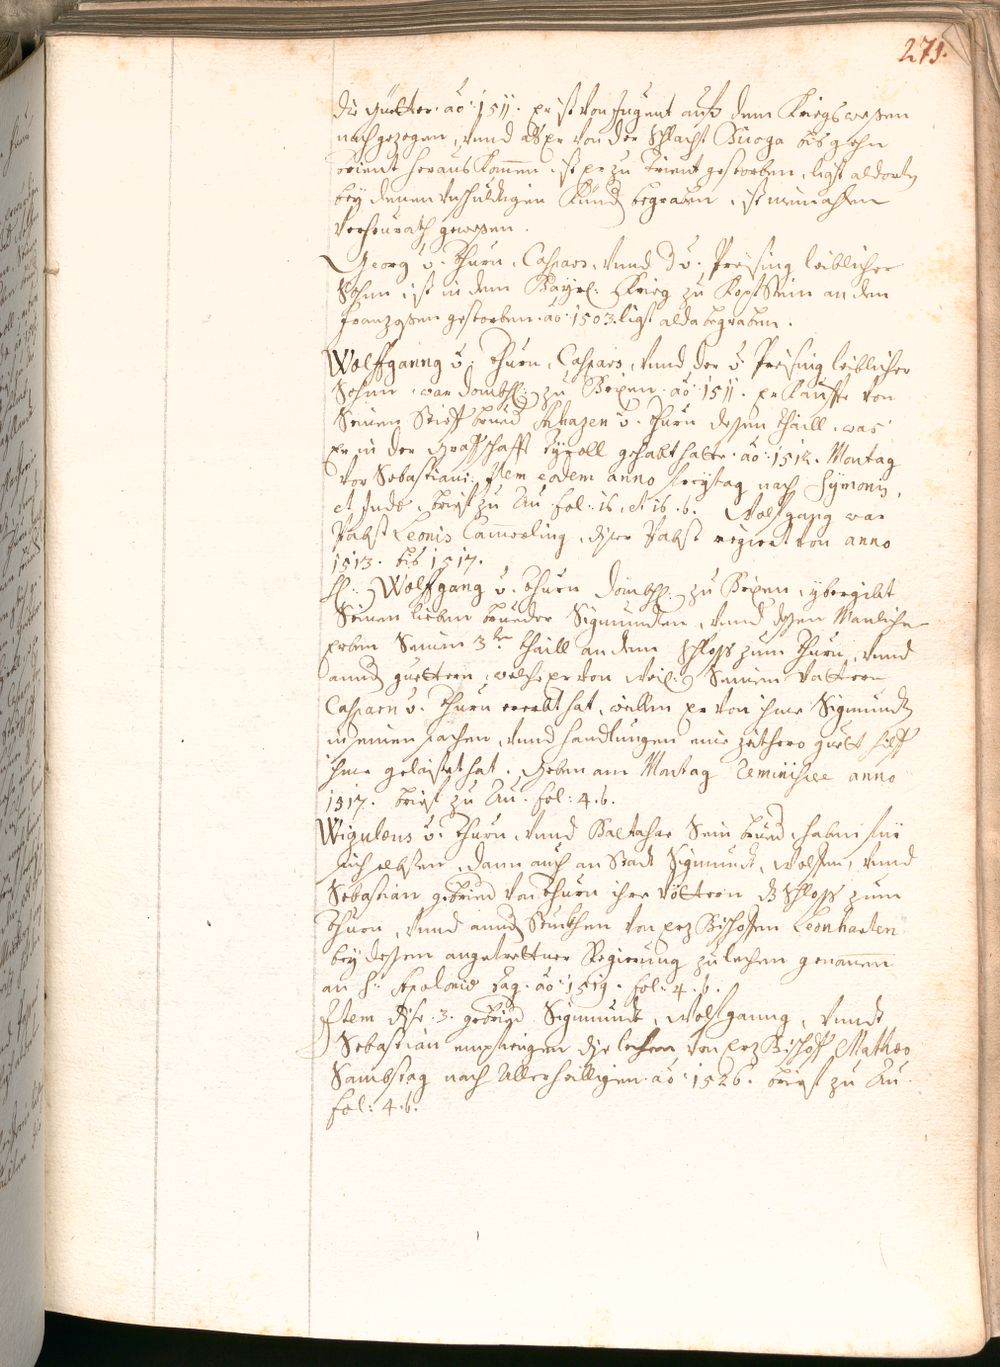 271.
die Guetter. ao: 1511. er ist von Jugent auf dem Kriegswesen
nachgezogen, vnnd als er von der Schlacht Buoga bis gehn
Trient heraus kommen, ist er zu Trient gestorben, ligt aldorten
bey denen Vnschuldigen Kind begraben, ist
verheurath gewesen.
Georg v. Thurn, Caspars, vnnd d v. Preising leiblicher
Sohn, ist in dem Bayr: Krieg zu Kopfstein an den
Franzosen gestorben. ao: 1503. ligt alda begraben.
Wolffganng v. Thurn, Caspars, vnnd der v. Preising leiblicher
Sohn, war dombh: zu Brixen. ao: 1511. er kauffte von
Seinem Brued Achazen v. Thurn dessen thaill, was
er in der Graffschafft Tyroll gehabt hatte. ao: 1512. Montag
vor Sebastiani. Item eodem anno freytag nach Symonis,
et Judae, brieff zu Au fol: 16, et 16. b. Wolfgang war
Pabst Leonis Camerling, diser Pabst regiert von anno
1513. bis 1517.
H: Wolffgang v. Thurn dombh: zu Brixen, ybergibt
Seinen lieben brueder Sigmunden, vnnd dessen Manliche
erben Seinen 3ten thaill an dem Schloss zum Thurn, vnnd
annd guettern, welche er von weil: Seinem Vattern
Casparn v. Thurn ererbt hat, weillen er von ihme Sigmundt
in seinen sachen, vnnd handlungen eine zeithero guett hilff
ihme gelaistet hat. Geben am Montag Reminiscere anno
1517. brieff zu Au. fol: 4. b.
Wiguleus v. Thurn, vnnd Balthasar Sein brued, haben für
sich selbsten, dann auch an Statt Sigmundt, Wolffen, vnnd
Sebastian gebrued von Thurn ihre Vöttern dz Schloss zum
Thurn, vnnd annd Stuckhen von erz Bischoffen Leonharten
bey dessen angetrettner Regierung zu lechen genommen
an S: Apolonio tag. ao: 1519. fol: 4. b.
Item dise .3. gebrued Sigmundt, Wolfganng, vnndt
Sebastian empfiengen die lechen von erz Bischof Matheo
Sambstag nach Allerheilligen. ao: 1526. brieff zu Au.
fol: 4. b.